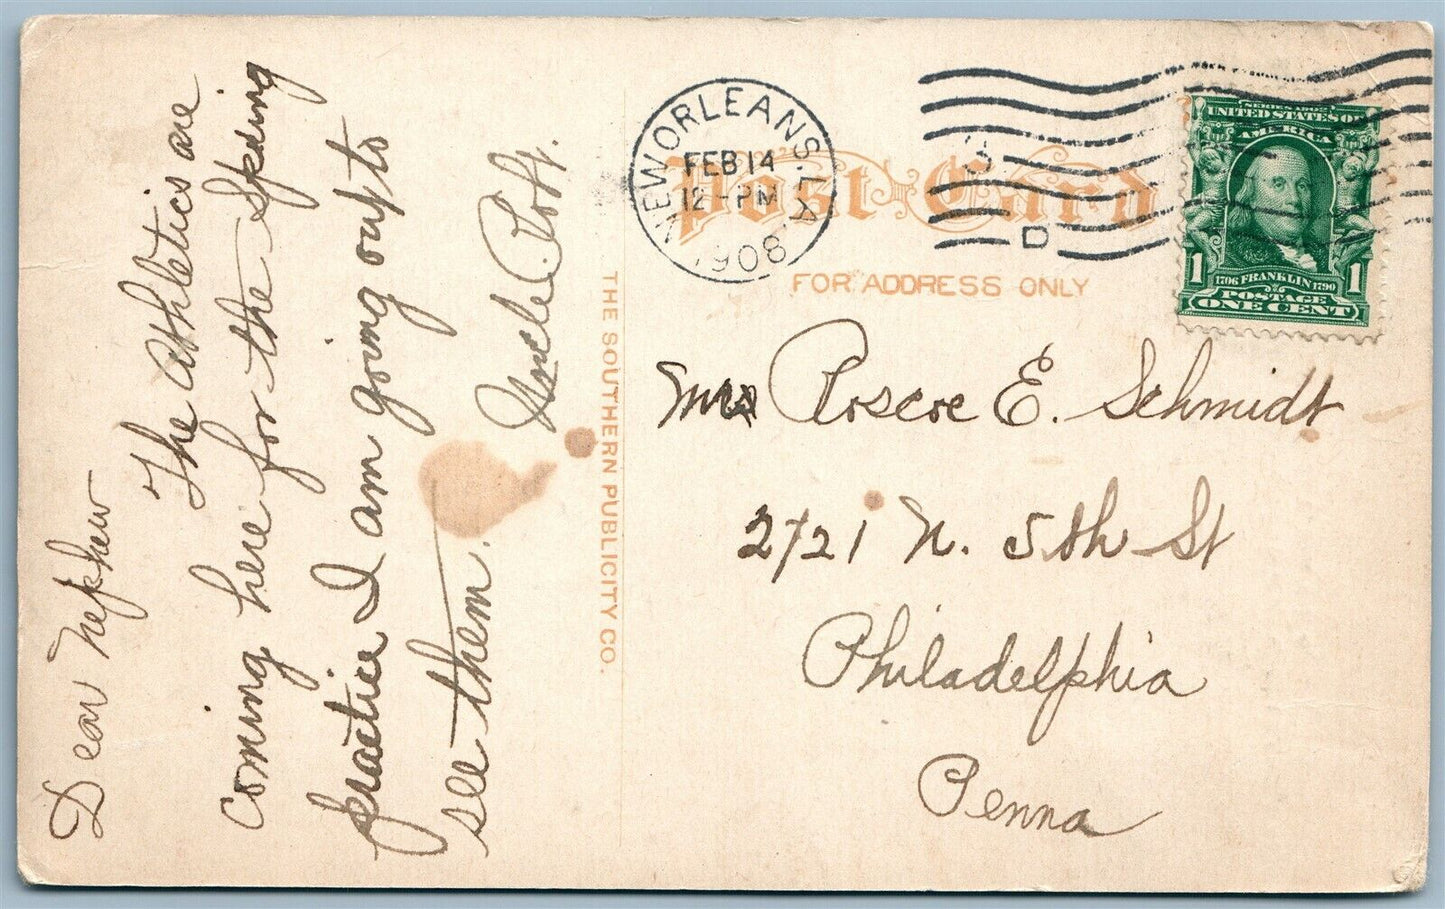 Dear Nephew
The Athletics are
coming here for the Spring
practice I am going out to
see them.
Uncle
THE SOUTHERN PUBLICITY CO.
NEW ORLEANS, LA.
FEB 14
12 - PM
1908
D
Post Card
FOR ADDRESS ONLY
UNITED STATES OF
AMERICA
1 1
1706 FRANKLIN 1790
POSTAGE
ONE CENT
Roscoe E. Schmidt
2721 N. 5th St
Philadelphia
Penna